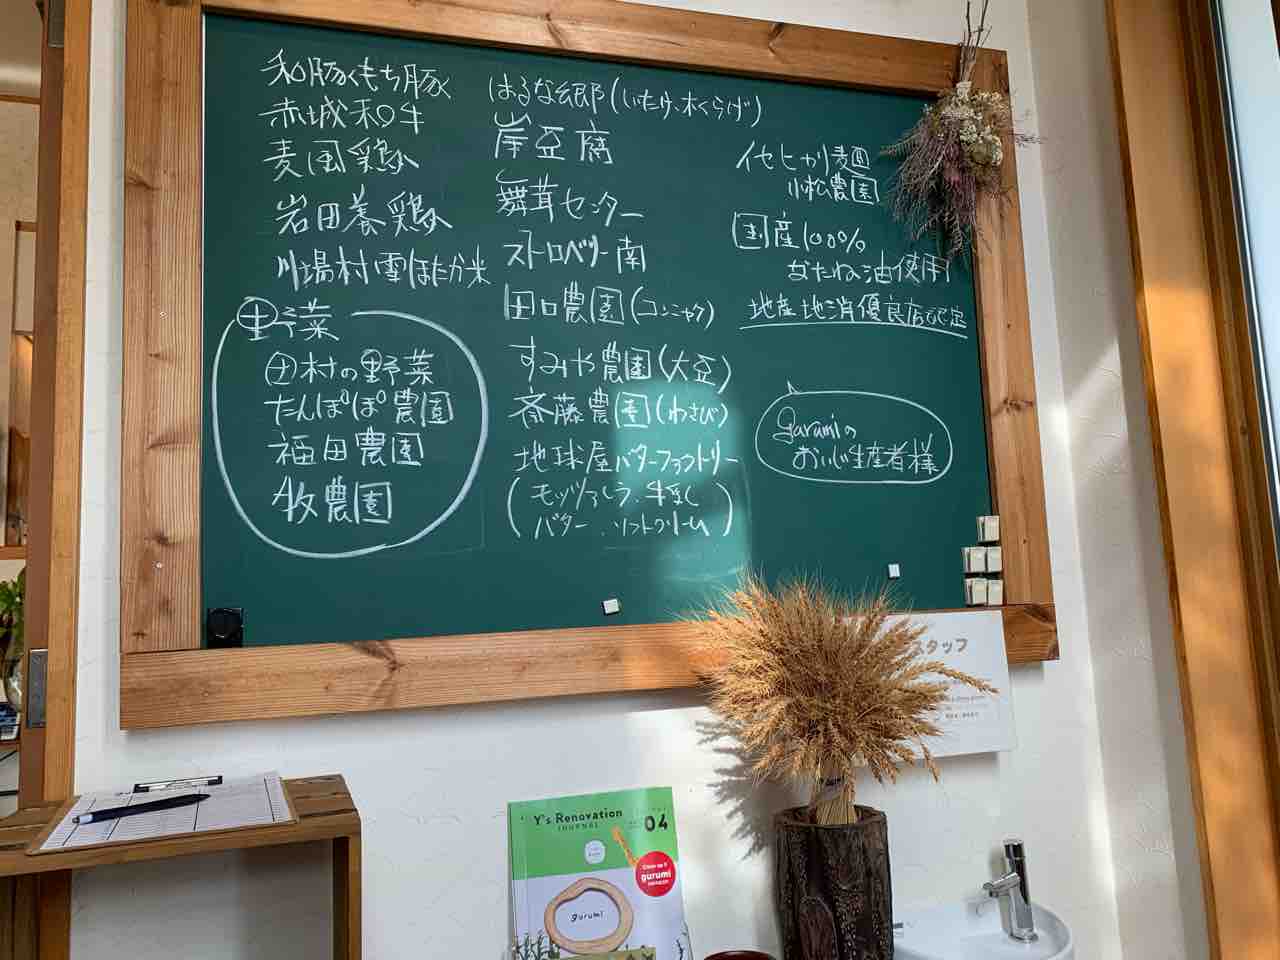 和豚もち豚
赤城和牛
麦風鶏
岩田養鶏
川場村雪ほたか米
野菜
田村の野菜
たんぽぽ農園
福田農園
牧農園
はるな郷(しいたけ、木くらげ)
岸豆腐
舞茸センター
ストロベリー南
田口農園(コンニャク)
すみや農園(大豆)
斎藤農園(わさび)
地球屋バターファクトリー
(モッツァレラ、牛乳
バター、ソフトクリーム)
イセヒカリ麺
小松農園
国産100%
なたね油使用
地産地消優良店認定
gurumiの
おいしい生産者様
スタッフ
Y's Renovation
JOURNAL
04
gurumi
gurumi